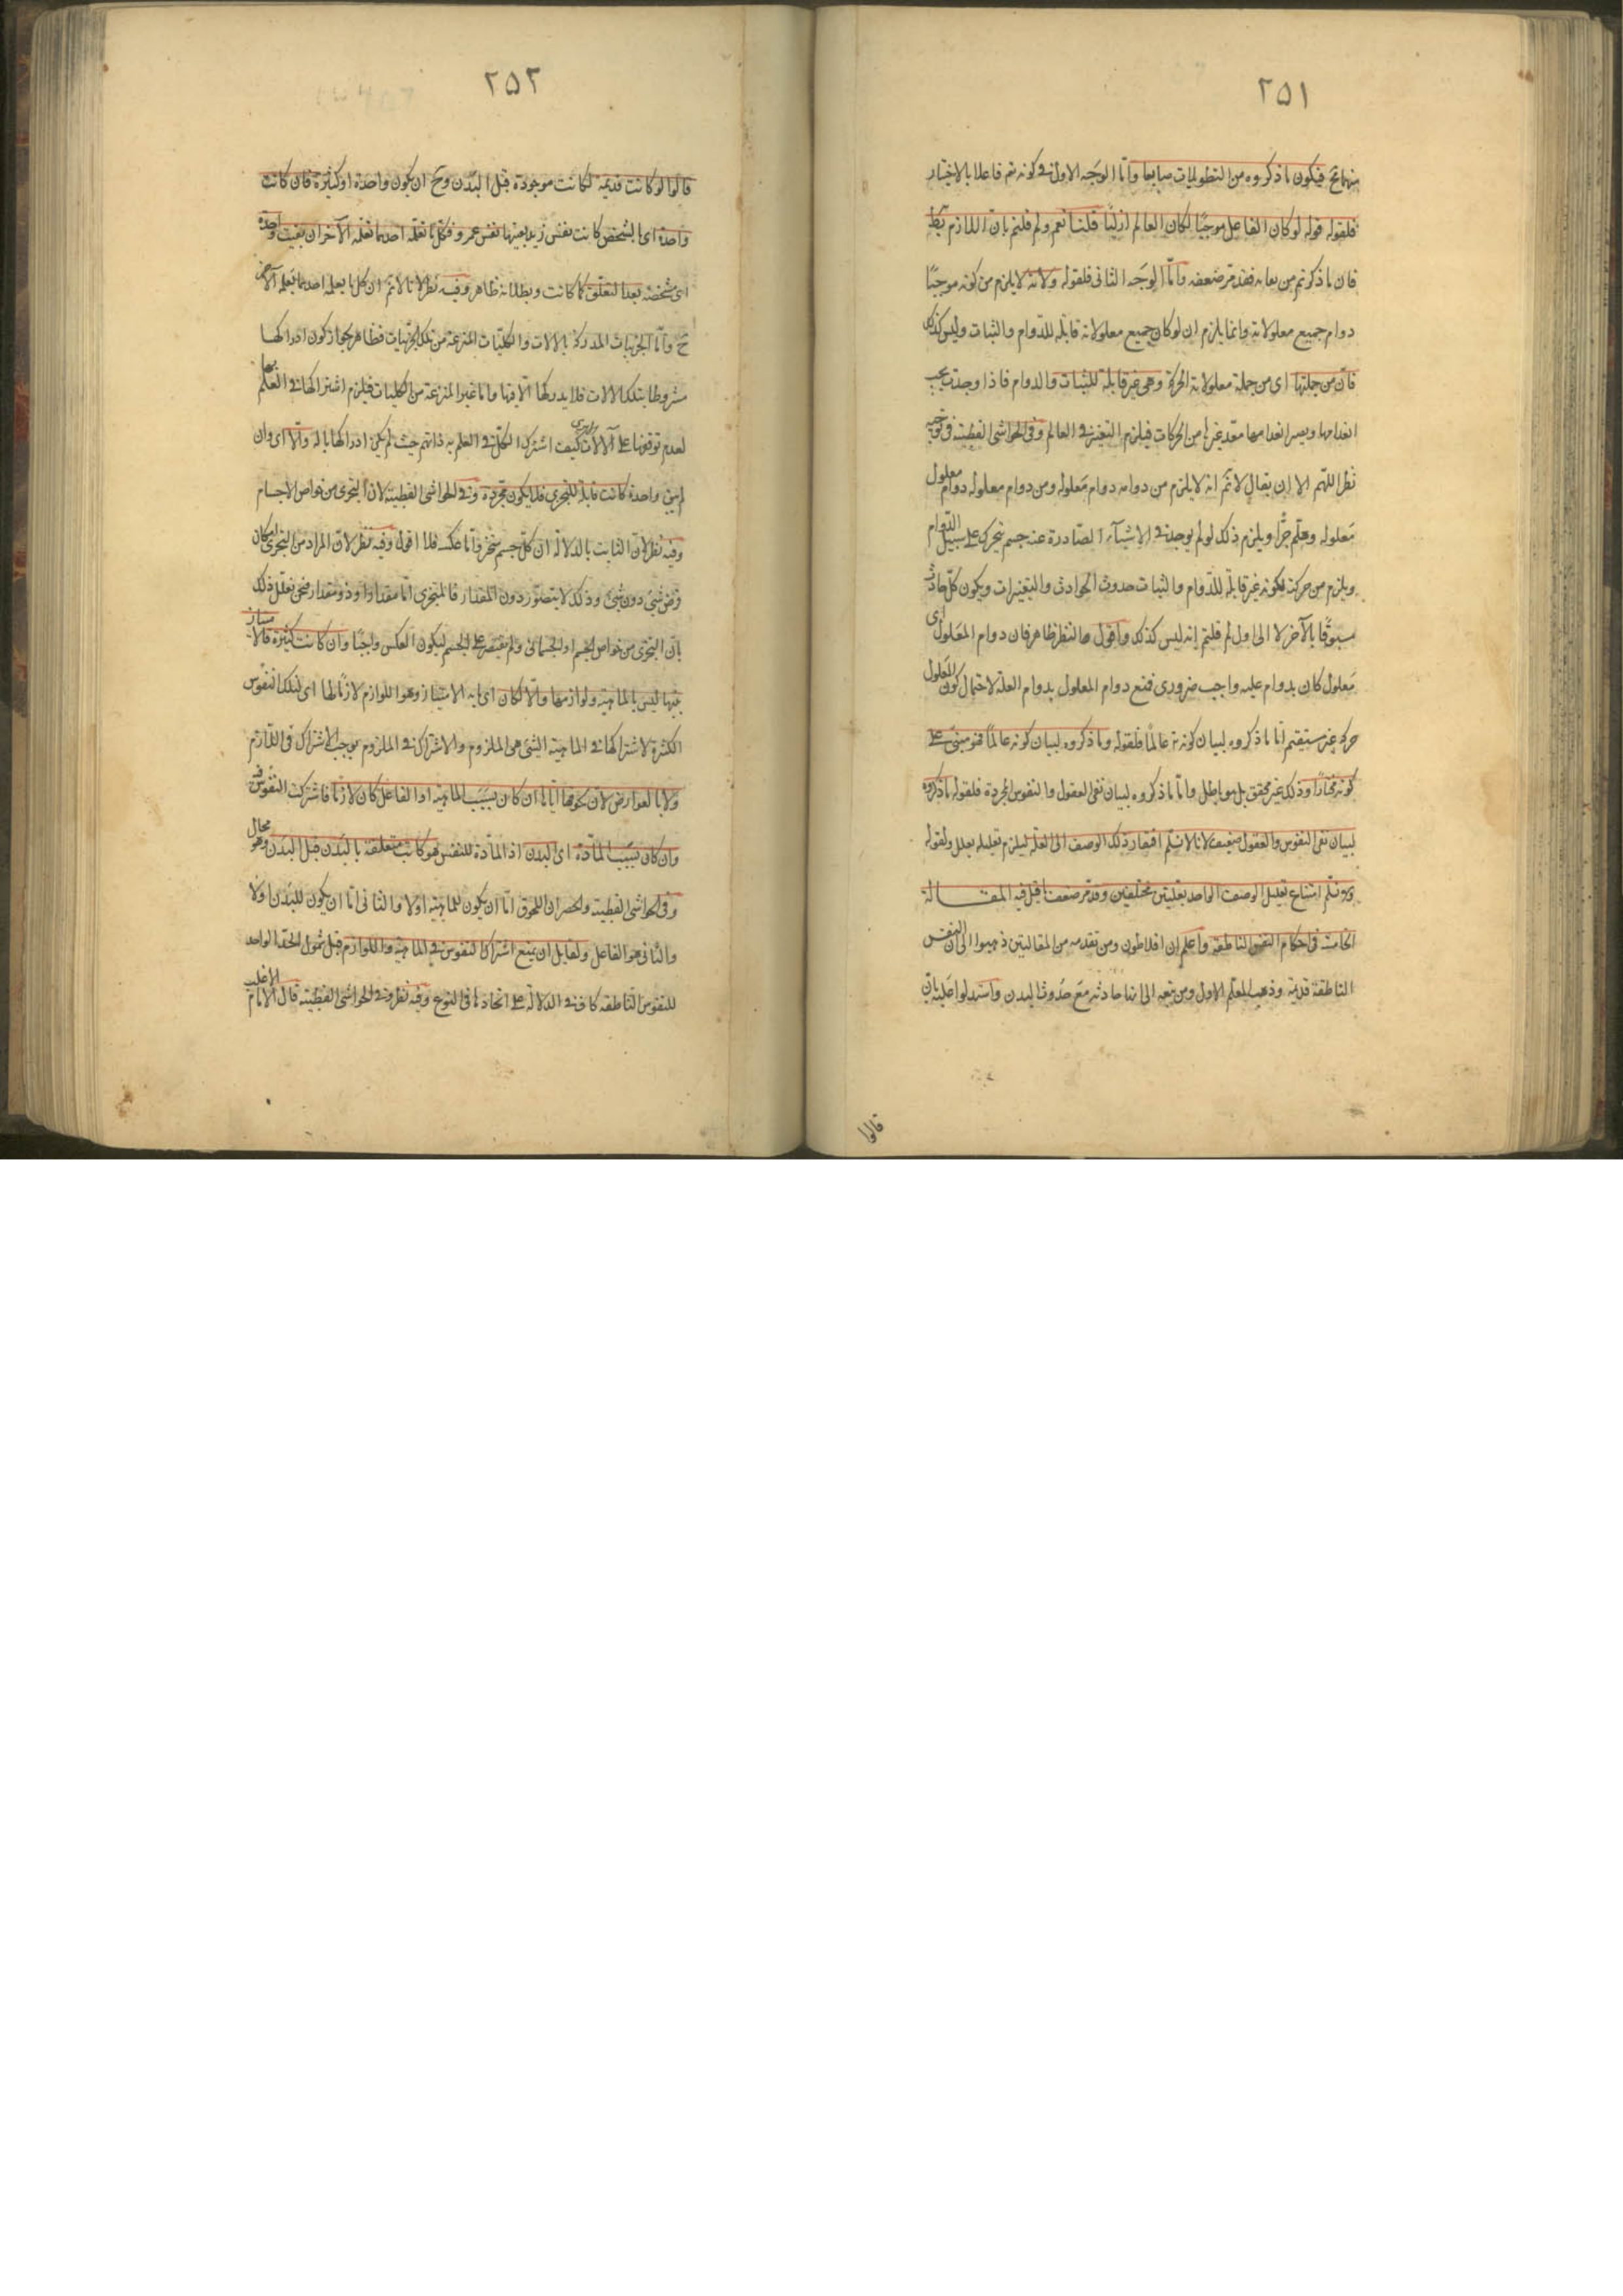 ٢٥١
منهما تح فيكون ما ذكروه من التطويلات ضايعا واما الوجه الاول في كونه تع فاعلا بالاختيار
فلقوله قوله لو كان الفاعل موجبا لكان العالم ازليا قلنا نعم ولم قلتم بان اللازم بط
فان ما ذكرتم من بيانه فقد مر ضعفه واما الوجه الثاني فلقوله ولانه لا يلزم من كونه موجبا
دوام جميع معلولاته وانما يلزم ان لو كان جميع معلولاته قابله للدوام والثبات وليس كذلك
فان من جملتها اى من جملة معلولاته الحركة وهى غير قابلة للثبات والدوام فاذا وجدت يجب
انعدامها ويصير انعدامها معد غيرها من الحركات فيلزم التغير في العالم وفى الحواشى القطبية فى توجيه
نظر اللهم الا ان يقال لا نم انه لا يلزم من دوامه دوام معلوله ومن دوام معلوله دوام معلول
معلوله وهلم جرا ويلزم ذلك لو لم يوجد في الاشياء الصادرة عنه جسم يتحرك على سبيل الدوام
ويلزم من حركته لكونه غير قابله للدوام والثبات حدوث الحوادث والتغيرات ويكون كل حادث
مسبوقا بالآخر لا الى اول لم قلتم انه ليس كذلك واقول النظر ظاهر فان دوام المعلول اى
معلول كان بدوام عليه واجب ضرورى فمنع دوام المعلول بدوام العلة لاحتمال كون المعلول
حركه غير مستقيم اما ما ذكروه لبيان كونه تع عالما فلقوله وما ذكروه لبيان كونه عالما فهو مبنى على
كونه مختارا وذلك غير محقق بل هو باطل واما ما ذكروه لبيان نفى العقول والنفوس المجردة فلقوله ما ذكروه
لبيان نفى النفوس والعقول ضعيف لانا لا نسلم افتقار ذلك الوصف الى العلة ليلزم تعليله بعلل ولقوله
ولا نسلم امتناع تعليل الوصف الواحد بعلتين مختلفتين وقد مر ضعف ما قيل فيه المقالة
الخامسة فى احكام النفس الناطقة واعلم ان افلاطون ومن تقدمه من المقالتين ذهبوا الى ان النفس
الناطقة قديمة وذهب المعلم الاول ومن تبعه الى انها حادثة مع حدوث البدن واستدلوا عليه بان
قالوا
٢٥٢
قالوا لو كانت قديمة لكانت موجودة قبل البدن وح ان يكون واحدة او كثيرة فان كانت
واحدة اى بالشخص كانت نفس زيد بعينها نفس عمرو فكل ما تعلمه احدهما تعلمه الآخر ان بقيت واحدة
اى شخصية بعد التعلق كما كانت وبطلانه ظاهر وفيه نظر لانا لا نم ان كل ما يعلمه احدهما يعلمه الآخر
ح واما الجزئيات المدركة بالالات والكليات المنتزعة من تلك الجزئيات فظاهر لجواز كون ادراكها
مشروطا بتلك الالات فلا يدركها الا فيها واما غير المنتزعة من الكليات فيلزم اشتراكها في العلم بها
لعدم توقفها على الآلات كيف اشترك الكل في العلم به ذاتهم حيث لم يكن ادراكها باله والا اى وان
لم يبق واحدة كانت قابلة للتجزى فلا يكون مجردة وفي الحواشى القطبية لان التجزى من خواص الاجسام
وفيه نظر لان الثابت بالدلاله ان كل جسم متجز واما عكسه فلا اقول وفيه نظر لان المراد من التجزى امكان
فرض شئ دون شئ وذلك لا يتصور دون المقدار فالمتجزى اما مقدار او ذو مقدار فمن تعلل ذلك
بان التجزى من خواص الجسم او الجسمانى ولم يقتصر على الجسم ليكون العكس واجبا وان كانت كثيرة فالامتياز
بينها ليس بالماهية ولوازمها والا لكان اى ما به الامتياز وهو اللوازم لازما لها اى لتلك النفوس
الكثيرة لاشتراكها في الماهية التى هى الملزوم والاشتراك في الملزوم يوجب الاشتراك فى اللازم
ولا بالعوارض لان لحوقها اياها ان كان بسبب الماهية او الفاعل كان لازما فاشتركت النفوس فيه
وان كان بسبب المادة اى البدن اذ المادة للنفس هو كانت متعلقة بالبدن قبل البدن وهو محال
وفى الحواشى القطبية والحصر ان اللحوق اما ان يكون للماهية اولا والثانى اما ان يكون للبدن اولا
والثانى هو الفاعل ولقايل ان يمنع اشتراك النفوس في الماهية واللوازم قبل شمول الحد الواحد
للنفوس الناطقه كاف في الدلالة على اتحادها فى النوع وفيه نظر وفي الحواشى القطبية قال الامام الاغلب